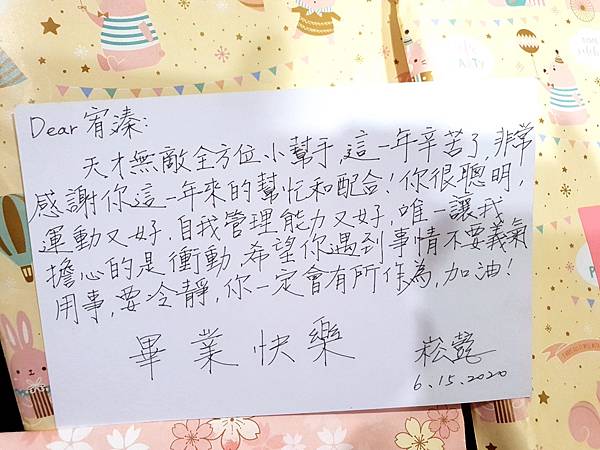 Dear 宥溱:
天才無敵全方位小幫手,這一年辛苦了,非常
感謝你這一年來的幫忙和配合!你很聰明,
運動又好,自我管理能力又好,唯一讓我
擔心的是衝動,希望你遇到事情不要義氣
用事,要冷靜,你一定會有所作為,加油!
畢業快樂
6.15.2020